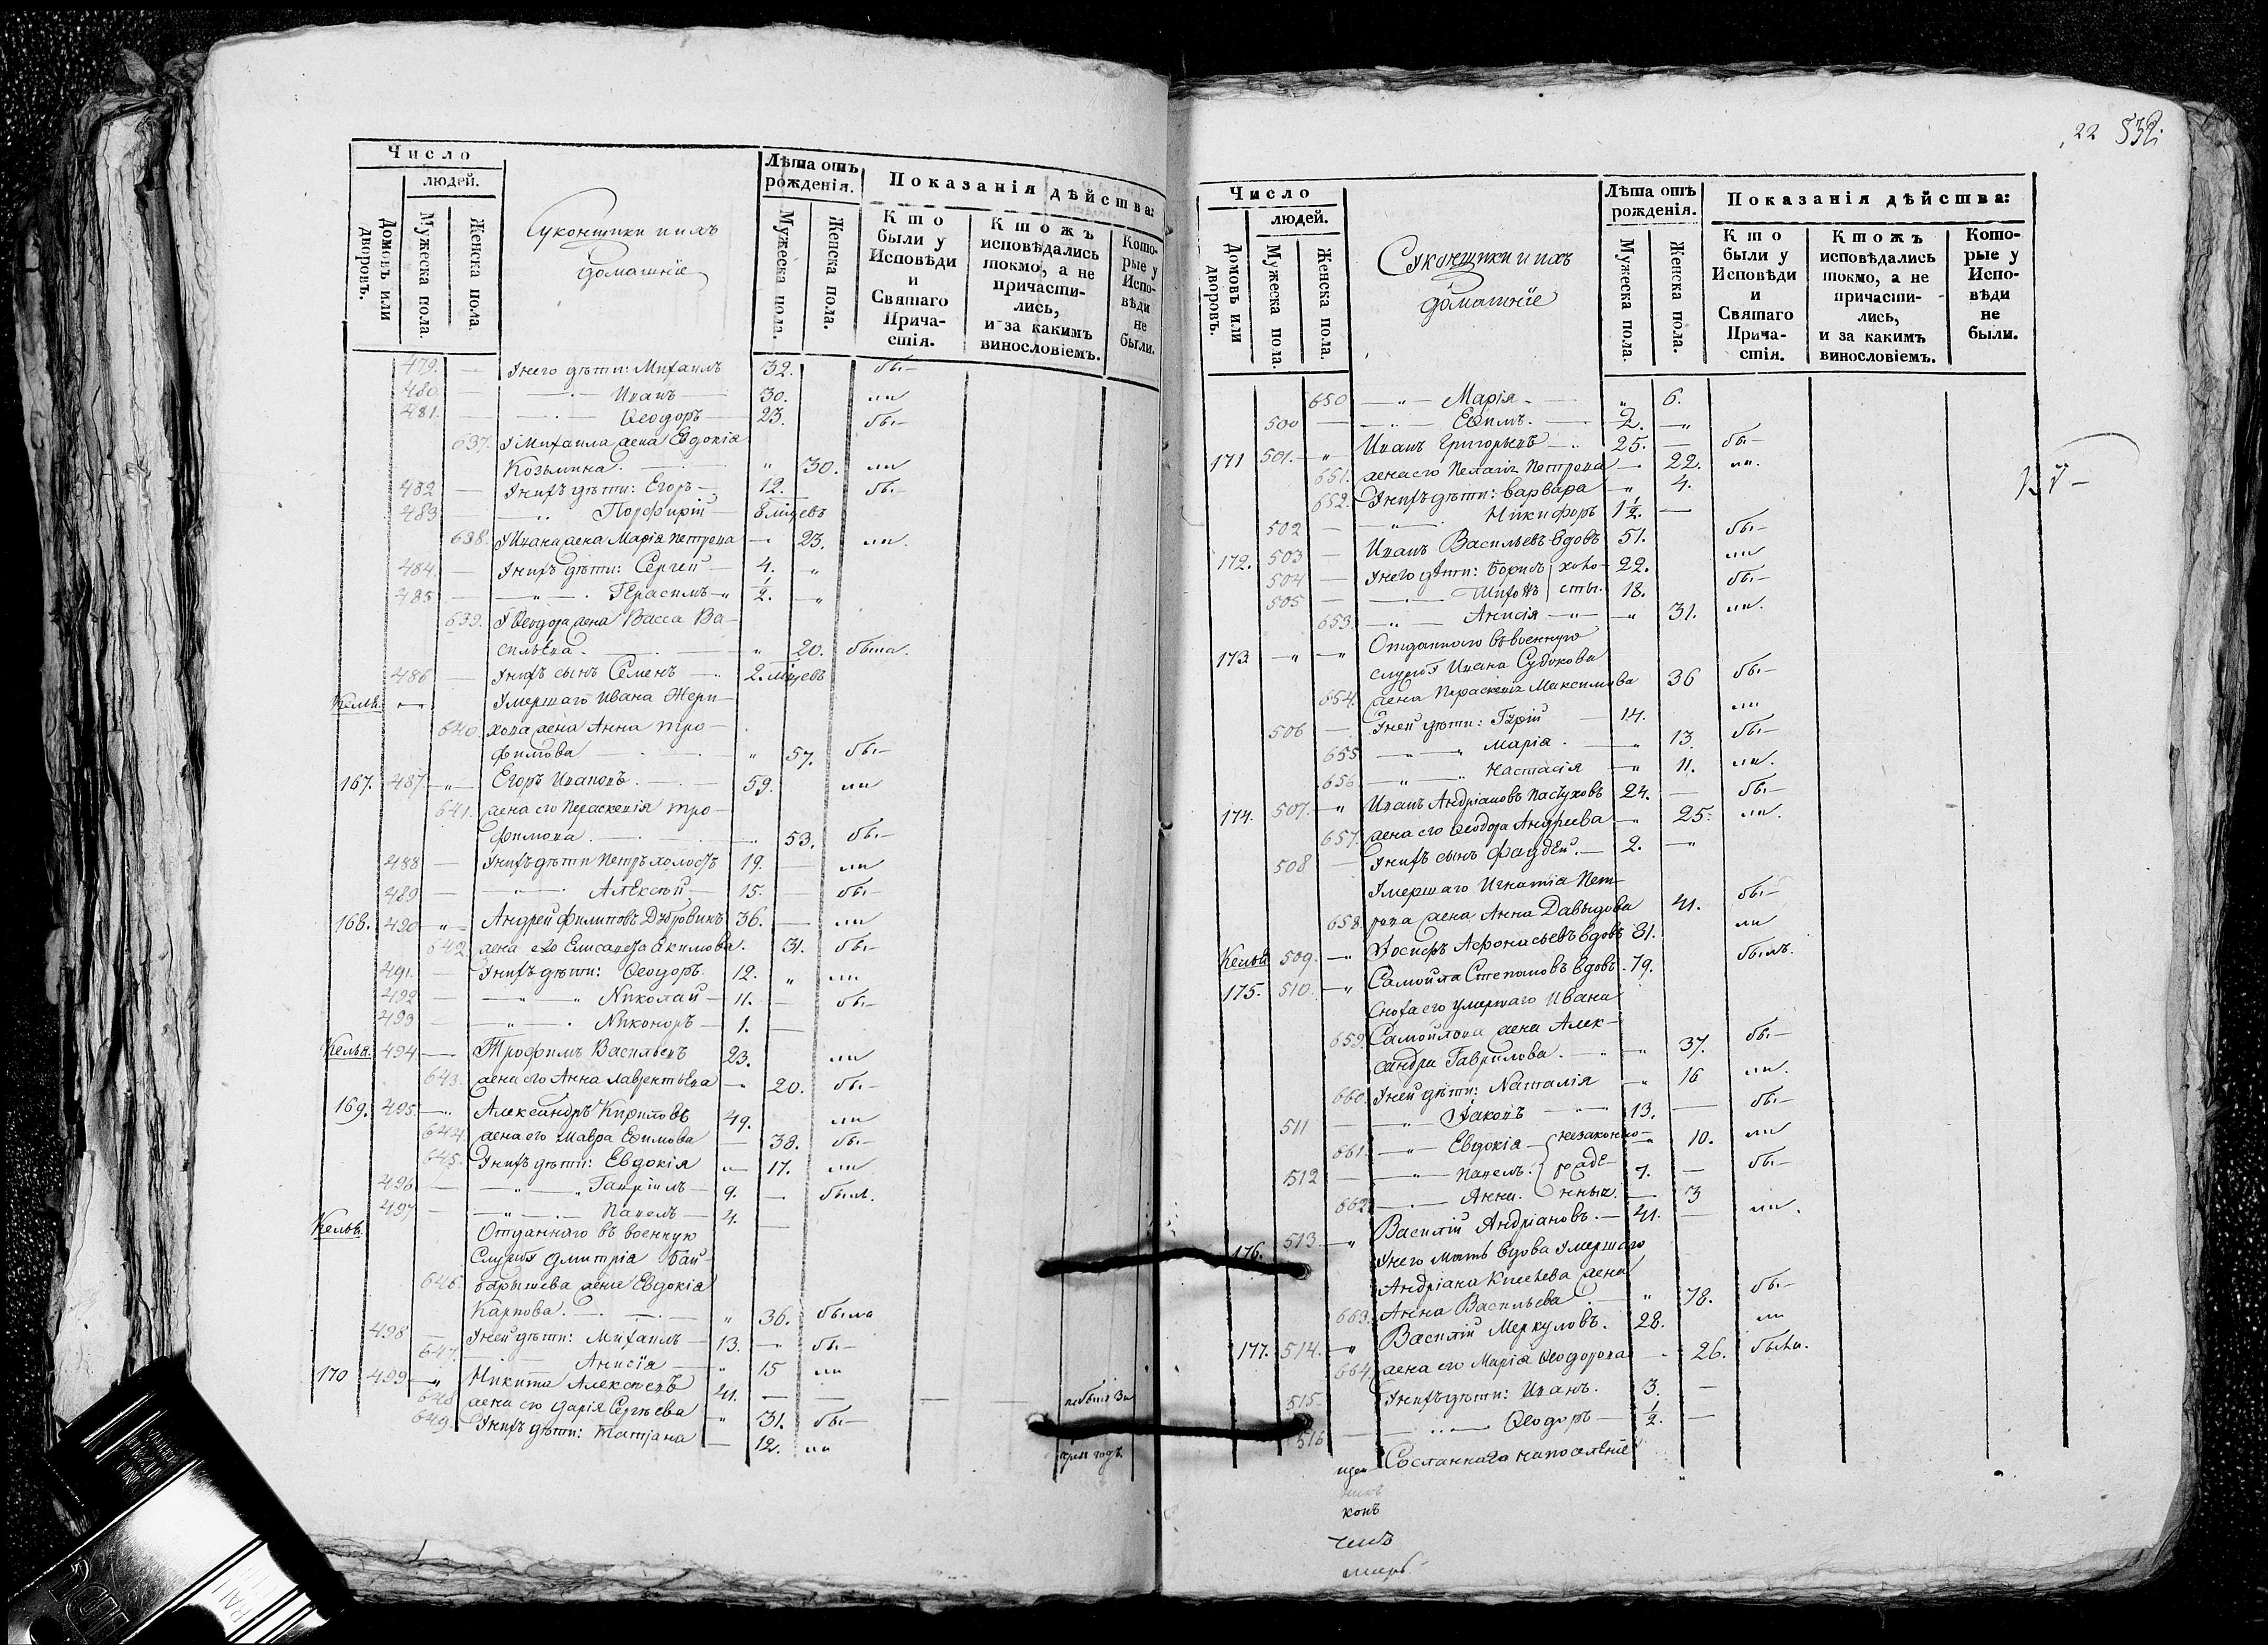 Число
людей.
Домовъ или дворовъ.
Мужеска пола.
Женска пола.
Суконщики и ихъ
домашніе
Лѣта отъ рожденія.
Мужеска пола.
Женска пола.
Показанія дѣйства:
Кто были у Исповѣди и Святаго Причастія.
Ктожъ исповѣдались токмо, а не причастились, и за какимъ винословіемъ.
Которые у Исповѣди не были.
479. — У него дѣти: Михаилъ 32. бы—
480 — Иванъ — 30. ли
481. — Ѳеодоръ — 23. бы—
637. У Михаила жена Евдокія
Козьмина. — „ 30. ли
482 — У нихъ дѣти: Егоръ — 12. бы—
483 — Порфирій — 8 мцевъ
638. У Ивана жена Марія Петрова — 23. ли
484. — У нихъ дѣти: Сергей — 4. „
485 — Герасимъ — ½. „
639. У Ѳеодора жена Васса Ва-
сильева. — „ 20. была.
486 — У нихъ сынъ Семенъ — 2. мцевъ
Келья. — Умершаго Ивана Жери-
640. хова жена Анна Тро-
фимова — „ 57. бы—
167. 487 — Егоръ Ивановъ. — 59. ли
641. жена его Параскевія Тро-
фимова. — 53. бы—
488 — У нихъ дѣти Петръ холостъ 19. — ли
489 — Алексѣй — 15. — бы—
168. 490 — Андрей Филиповъ Дубровинъ 36. — ли
642. жена его Елисавета Екимова. 31. бы—
491. — У нихъ дѣти: Ѳеодоръ. 12. „ ли
492 — Николай — 11. — бы—
493 — Никоноръ — 1. —
Келья. 494 — Трофимъ Васильевъ 23. ли
643. жена его Анна Лаврентьева — 20. бы—
169. 495. — Александръ Кириловъ 49. ли
644. жена его Мавра Ефимова — 38. бы—
645. У нихъ дѣти: Евдокія — 17. ли
496 — Гавріилъ — 9. — былъ.
497 — Павелъ — 4. —
Келья. Отданнаго въ военную
службу Дмитрія Бай-
646. барышева жена Евдокія
Карпова. — „ 36. была
498 — У ней дѣти: Михаилъ — 13. — бы—
647. — Анисія — „ 15 ли
170 499 — Никита Алексѣевъ 41. — — не былъ за
648 жена его Дарія Сергѣева „ 31. бы—
649. У нихъ дѣти: Татіана — 12. ли
годъ.
22 532
Число
людей.
Домовъ или дворовъ.
Мужеска пола.
Женска пола.
Суконщики и ихъ
домашніе
Лѣта отъ рожденія.
Мужеска пола.
Женска пола.
Показанія дѣйства:
Кто были у Исповѣди и Святаго Причастія.
Ктожъ исповѣдались токмо, а не причастились, и за какимъ винословіемъ.
Которые у Исповѣди не были.
650 — Марія. — „ 6.
500 — Ефимъ. — 2. „
171 501. — Иванъ Григорьевъ — 25. — бы—
651. жена его Пелагія Петрова — 22. ли.
652. У нихъ дѣти: Варвара — „ 4.
502 — Никифоръ 1½. —
172. 503 — Иванъ Васильевъ вдовъ 51. бы—
504 — У него дѣти: Борисъ холо- 22. ли
505 — сты. 18. бы—
653. — Анисія — „ 31. ли.
173 — Отданнаго въ военную
службу Ивана Судокова
654. жена Параскевія Максимова 36 бы—
506 — У ней дѣти: Гурій — 14. ли
655 — Марія. — „ 13. бы—
656 — Настасія — „ 11. ли.
174. 507. — Иванъ Андріановъ Пастуховъ 24. — бы—
657. жена его Ѳеодора Андреева — 25. ли.
508 — У нихъ сынъ Фаддей. — 2. „
Умершаго Игнатія Пет-
658. рова жена Анна Давыдова 41. бы—
Келья 509. — Іосифъ Афонасьевъ вдовъ 81. ли
175. 510. — Самойла Степановъ вдовъ. 79. былъ.
Сноха его умершаго Ивана
659. Самойлова жена Алек-
сандра Гаврилова. — „ 37. бы—
660. У ней дѣти: Наталія „ 16 ли.
511 — Іаковъ — 13. — бы—
661. — Евдокія — незаконно- „ 10. ли
512 — Павелъ. рожде- 7. — бы—
662. — Анна. нныя. — 3 ли.
176. 513. — Василій Андріановъ. — 41. —
У него мать вдова умершаго
Андріана Киселева жена
663. Анна Васильева — „ 78. бы—
177. 514. — Василій Меркуловъ. 28. ли
664. жена его Марія Ѳеодорова — 26. были.
515. У нихъ дѣти: Иванъ. 3. —
516 — Ѳеодоръ — ½. —
Сосланнаго на поселѣніе
щен
никъ
ковъ